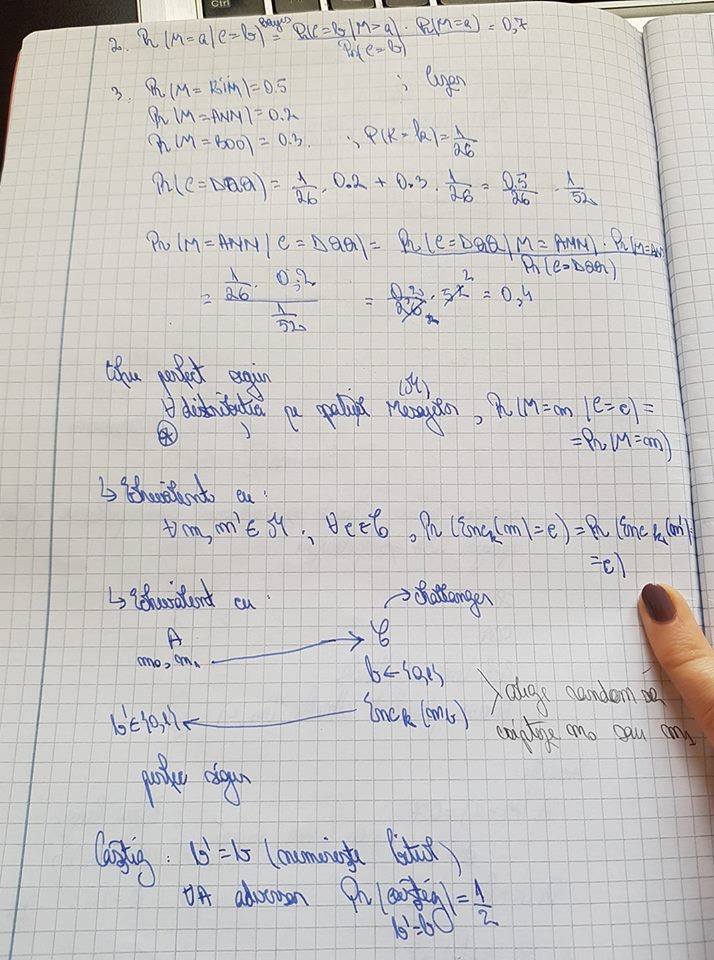 2. Pr(M=a|C=b) Bayes= Pr(C=b|M=a) · Pr(M=a) / Pr(C=b) = 0,7
3. Pr(M=KIM)=0.5 ;
Pr(M=ANN)=0.2
Pr(M=BOO)=0.3 ; P(K=k)=1/26
Pr(C=DQQ)= 1/26 · 0.2 + 0.3 · 1/26 = 0.5/26 · 1/52
Pr(M=ANN|C=DQQ)= Pr(C=DQQ|M=ANN) · Pr(M=ANN) / Pr(C=DQQ)
= 1/26 · 0.2 / 1/52 = 0.2/26 · 52 2 = 0,4
perfect sigur
∀ distribuția pe spațiul Mesajelor (M), Pr(M=m|C=c)=
⊛ =Pr(M=m)
↳ Echivalent cu:
∀m,m'∈M; ∀c∈C, Pr(Enck(m)=c)=Pr(Enck(m')
=c)
↳ Echivalent cu: → challanger
A C
m0, m1
b←{0,1}
Enck(mb)
alege random să
cripteze m0 sau m1
b'∈{0,1}
perfec sigur
Câștig: b'=b (numerește bitul)
∀A adversar Pr(câștig)=1/2
b'=b